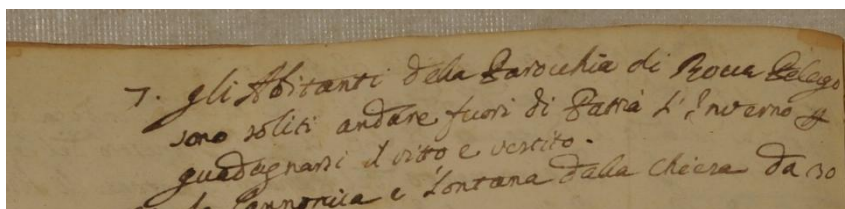 7. Gli Abitanti della Parocchia di Rocca Pelago
sono soliti andare fuori di Patria L'Inverno p
guadagnarsi il vitto e vestito.
la Cannonica e Lontana dalla Chiesa da 30